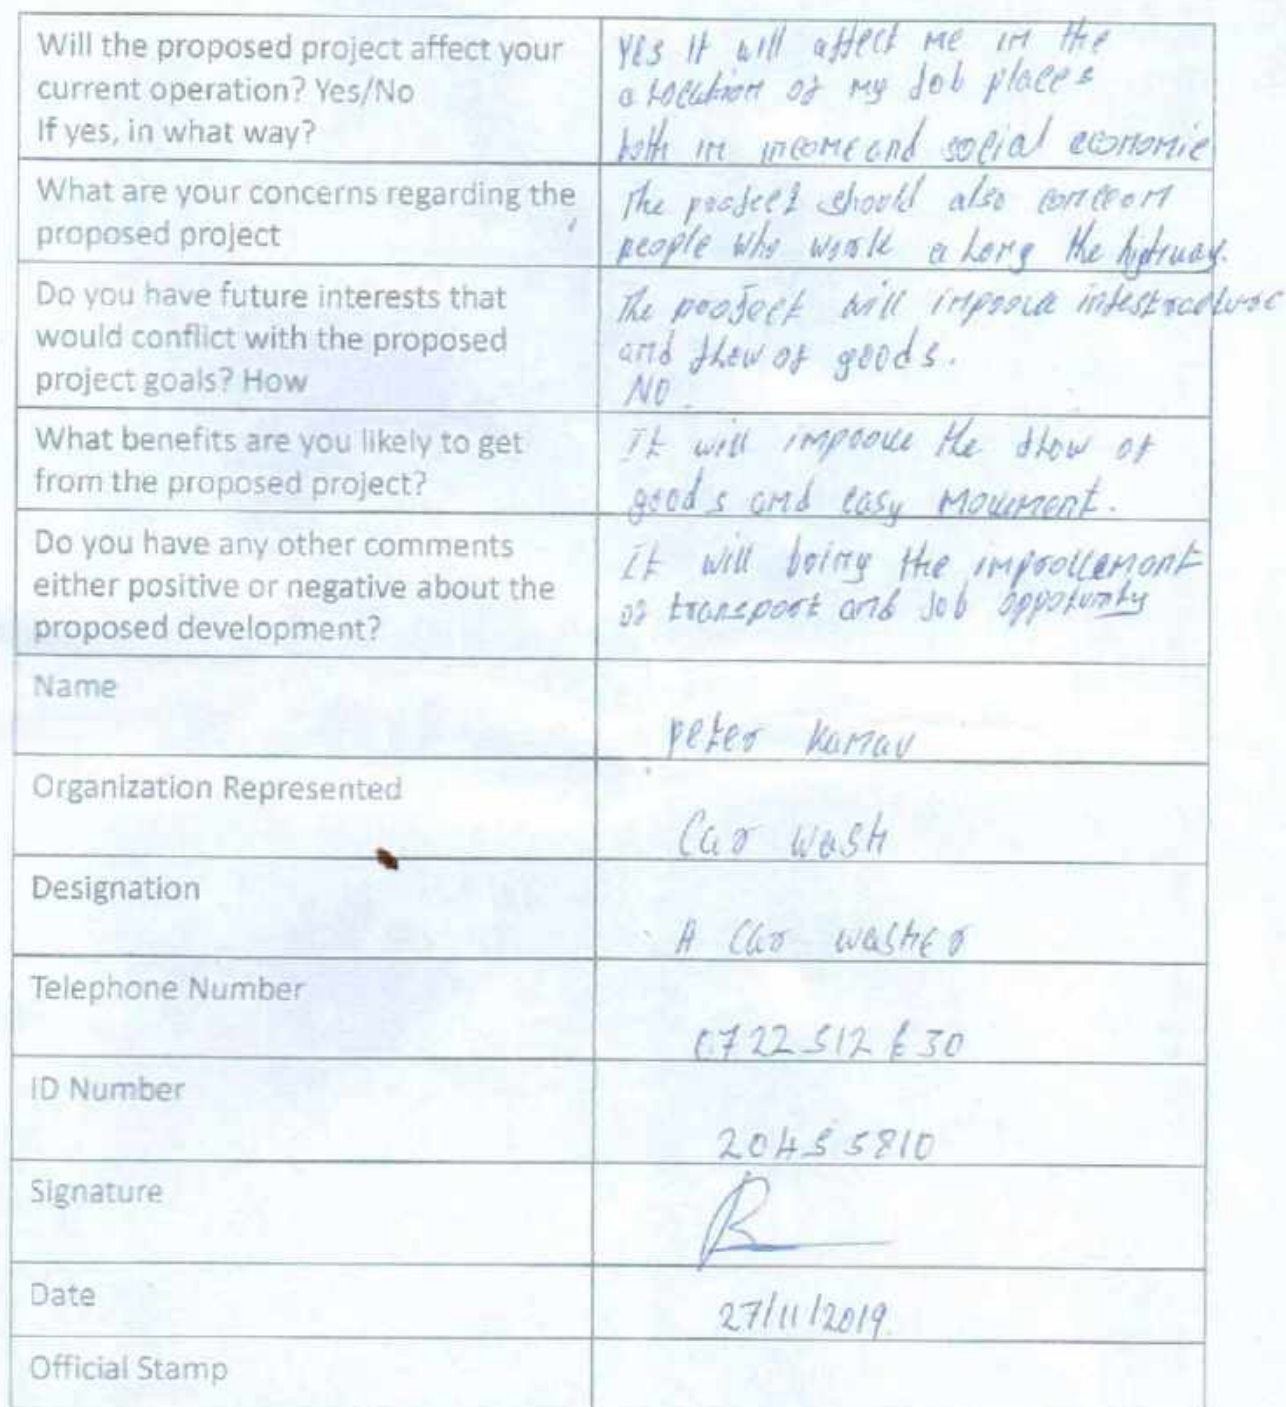 Will the proposed project affect your
current operation? Yes/No
If yes, in what way?
Yes it will affect me in the
a location of my Job places
both in income and social economic
What are your concerns regarding the
proposed project
The project should also concern
people who work a long the highway.
Do you have future interests that
would conflict with the proposed
project goals? How
The project will improve
and flow of goods.
NO
What benefits are you likely to get
from the proposed project?
It will improve the flow of
goods and easy movement.
Do you have any other comments
either positive or negative about the
proposed development?
It will bring the improvement
of transport and Job oppotunity
Name
Peter Kamau
Organization Represented
Car wash
Designation
A Car washer
Telephone Number
0722512
ID Number
20455810
Signature
Date
27/11/2019
Official Stamp